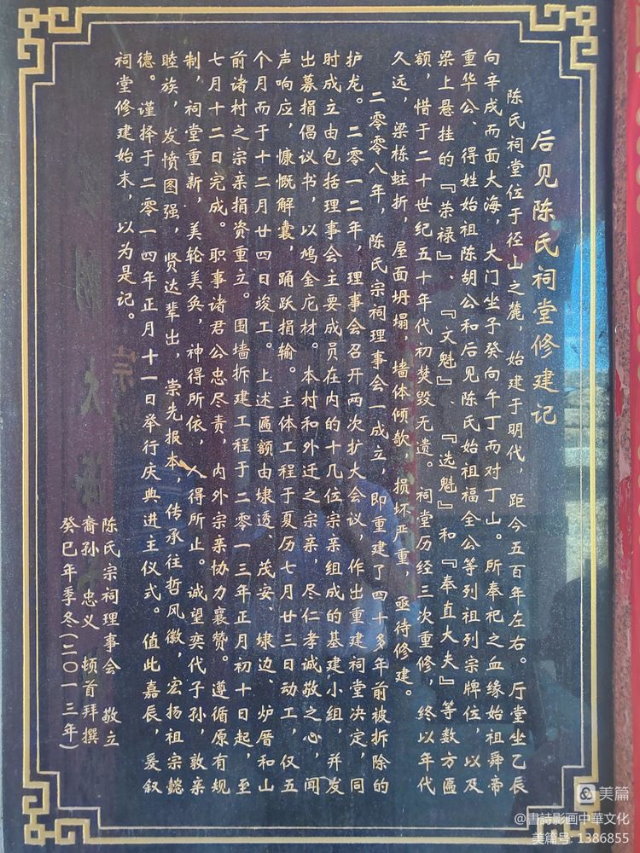 后见陈氏祠堂修建记
陈氏祠堂位于径山之麓，始建于明代，距今五百年左右。厅堂坐乙辰
向辛戌而面大海，大门坐子癸向午丁而对丁山。所奉祀之血缘始祖舜帝
重华公、得姓始祖陈胡公和后见陈氏始祖福全公等列祖列宗牌位，以及
梁上悬挂的『荣禄』、『文魁』、『选魁』和『奉直大夫』等数方匾
额，惜于二十世纪五十年代初焚毁无遗。祠堂历经三次重修，终以年代
久远，梁栋蛀折，屋面坍塌，墙体倾欹，损坏严重，亟待修建。
二零零八年，陈氏宗祠理事会一成立，即重建了四十多年前被拆除的
护龙。二零一二年，理事会召开两次扩大会议，作出重建祠堂决定，同
时成立由包括理事会主要成员在内的十几位宗亲组成的基建小组，并发
出募捐倡议书，以鸠金庀材。本村和外迁之宗亲，尽仁孝诚敬之心，闻
声响应，慷慨解囊，踊跃捐输。主体工程于夏历七月廿三日动工，仅五
个月而于十二月廿四日竣工。上述匾额由埭透、茂安、埭边、炉厝和山
前诸村之宗亲捐资重立。围墙拆建工程于二零一三年正月初十日起，至
七月十二日完成。职事诸君公忠尽责，内外宗亲协力襄赞。遵循原有规
制，祠堂重新，美轮美奂，神得所依，人得所止。诚望奕代子孙，敦亲
睦族，发愤图强，贤达辈出，崇先报本，传承往哲风徽，宏扬祖宗懿
德。谨择于二零一四年正月十一日举行庆典进主仪式。值此嘉辰，爰叙
祠堂修建始末，以为是记。
陈氏宗祠理事会 敬立
裔孙 忠义 顿首拜撰
癸巳年季冬(二〇一三年)
美篇
@書詩影画中華文化
美篇号:1386855